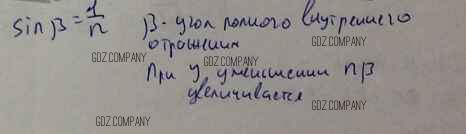 sin β = 1/n β - угол полного внутреннего
отражения
GDZ.COMPANY
GDZ.COMPANY
GDZ.COMPANY
При уменьшении n β
увеличивается
GDZ.COMPANY
GDZ.COMPANY
GDZ.COMPANY